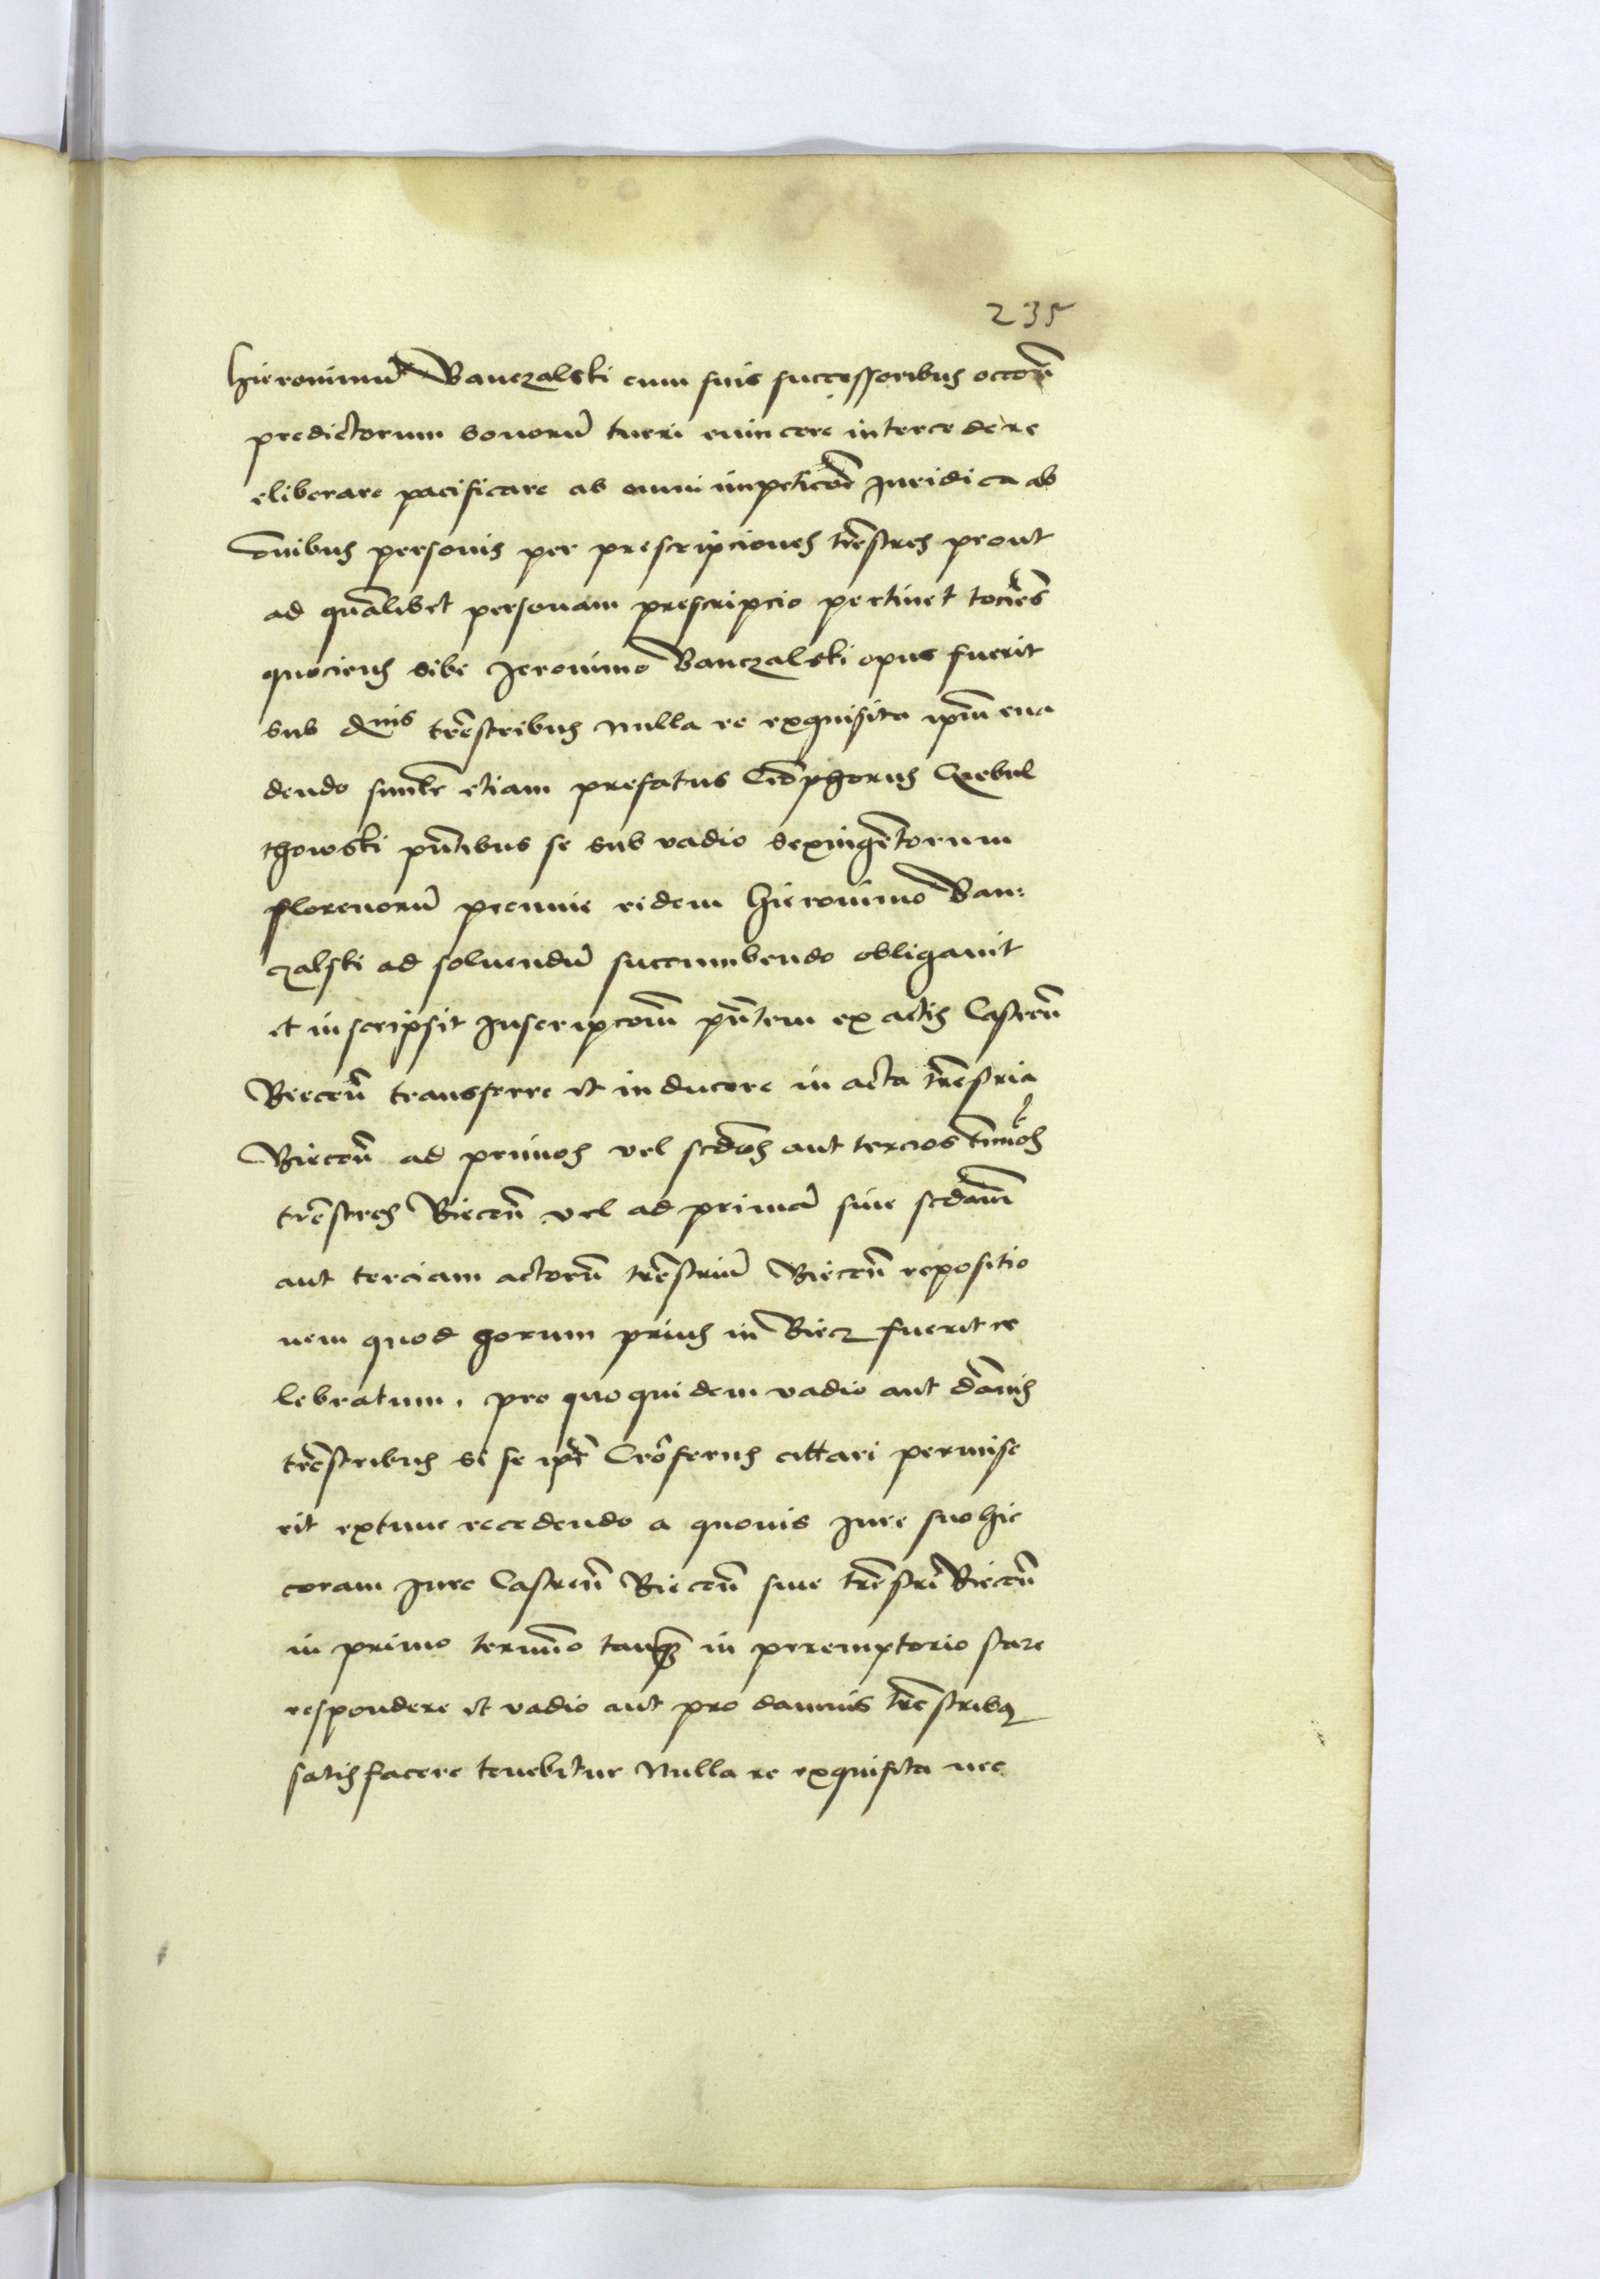 235
Hieronimu Banczalski cum suis successoribus occōn
predictorum bonorū tueri euincere intercedere
eliberare pacificare ab omni impeticōe Juridica ab
Omibus personis per prescripciones trēstres prout
ad quālibet personam prescripcio pertinet tociens
quociens sibi Jeronimo Banczalski opus fuerit
sub dnis trēstribus nulla re exquisita ipm eua
dendo similr etiam prefatus Cristophorus
thowski pntibus se sub vadio sexingētorum
florenorū pecunie eidem Hieronimo Ban:
czalski ad soluendū succumbendo obligauit
et inscripsit Inscripcom pntem ex actis Castreñ
Bieceñ transferre et inducere in acta trēstria
Bieceñ ad primos vel scdos aut tercios tmios
trēstres Bieceñ vel ad primā siue scdam
aut terciam actorū trēstriū Bieceñ repositio
nem quod horum prius in Biecz fuerit ce
lebratum. pro quoquidem vadio aut damnis
trēstribus si se ipse Croferus cittari permise
rit extunc recedendo a quouis Jure suo hic
coram Jure Castreñ Bieceñ siue trēstri Bieceñ
in primo termīo tanq in peremptorio stare
respondere et vadio aut pro damnis trēstribq
satisfacere tenebitur nulla re exquisita nec